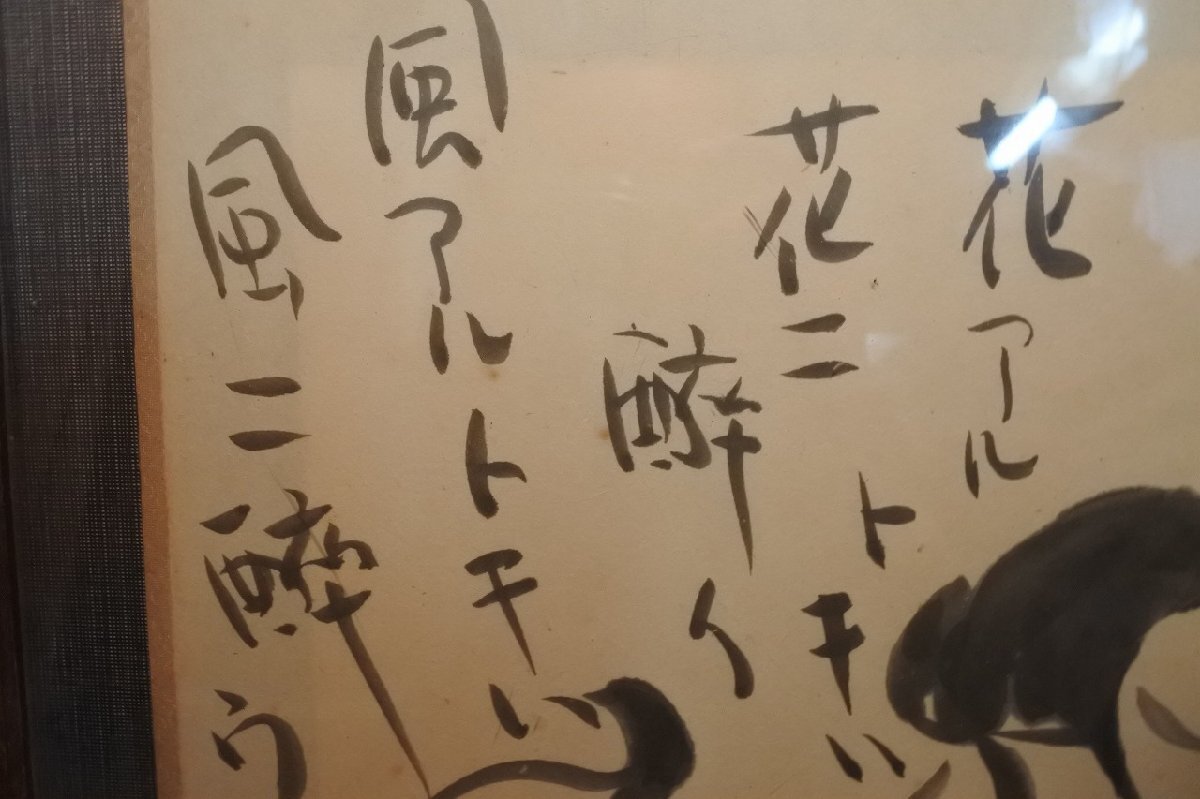 花アル
トキハ
花ニ
醉イ
風アルトキハ
風ニ醉ウ